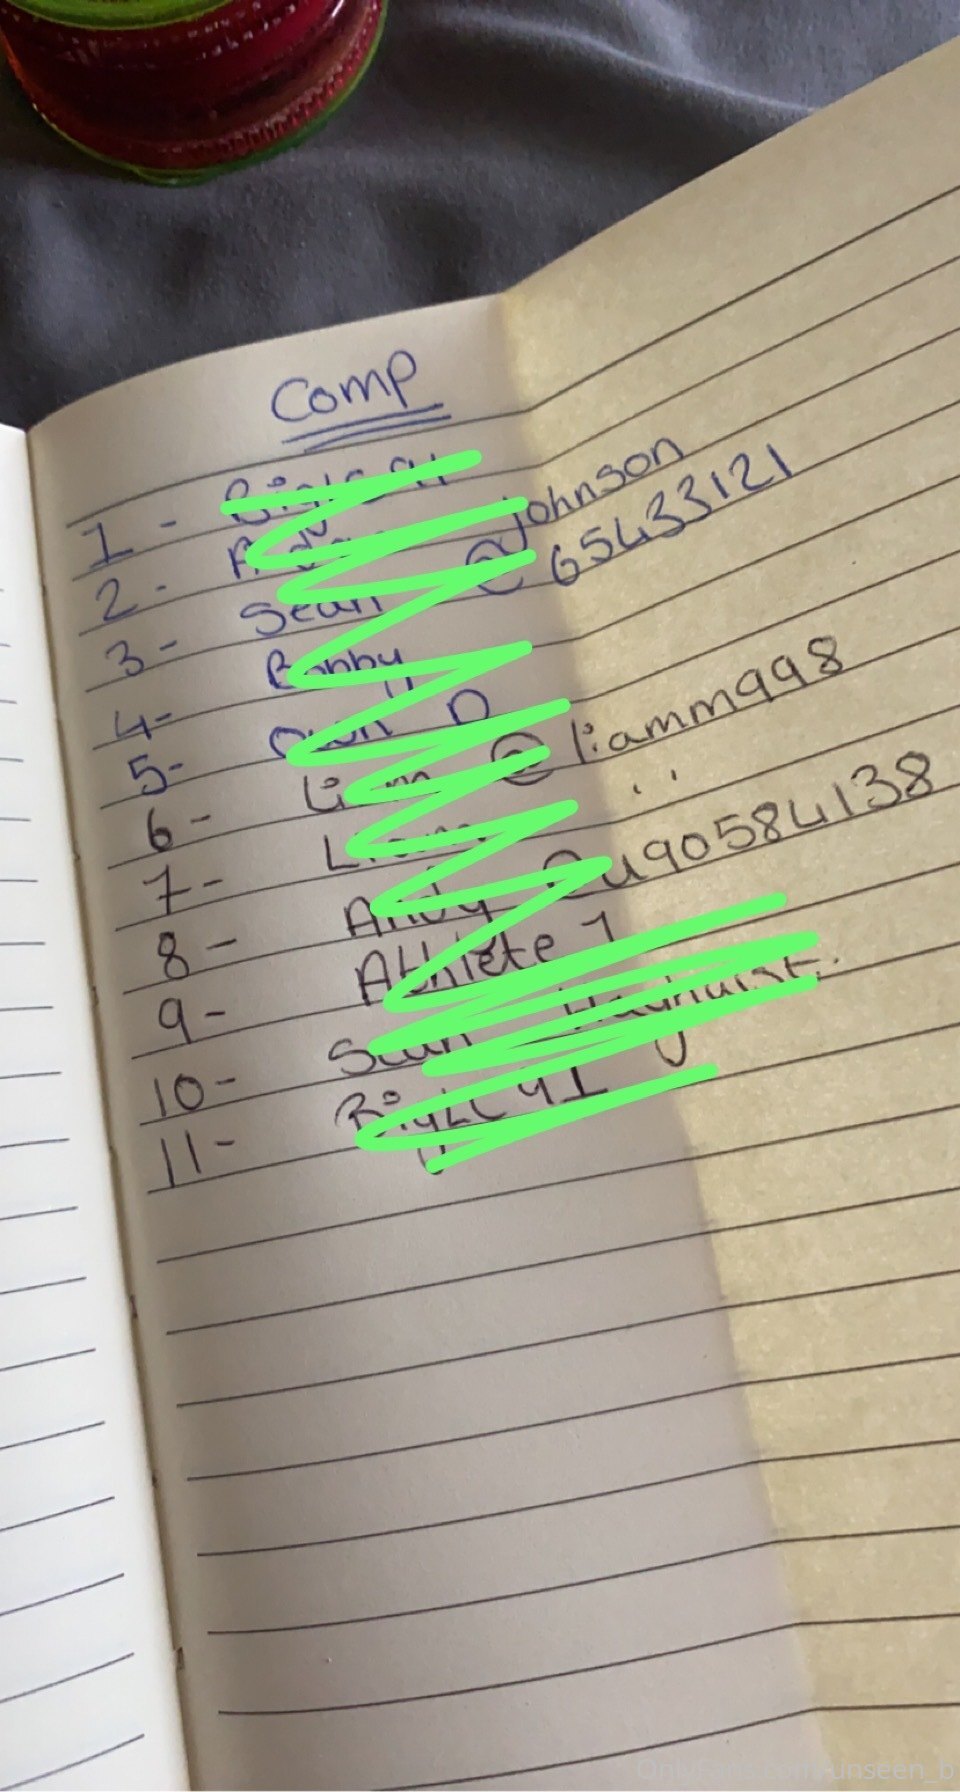 Comp
1 -
2 - Johnson
3 - Sean @ 65433121
4- Bobby
5- D
6 - Liam @ liamm998
7 - Liam
8 - Andy @ u90584138
9 - Athlete 1
10 - Sean
11 -
OnlyFans.com/unseen_b